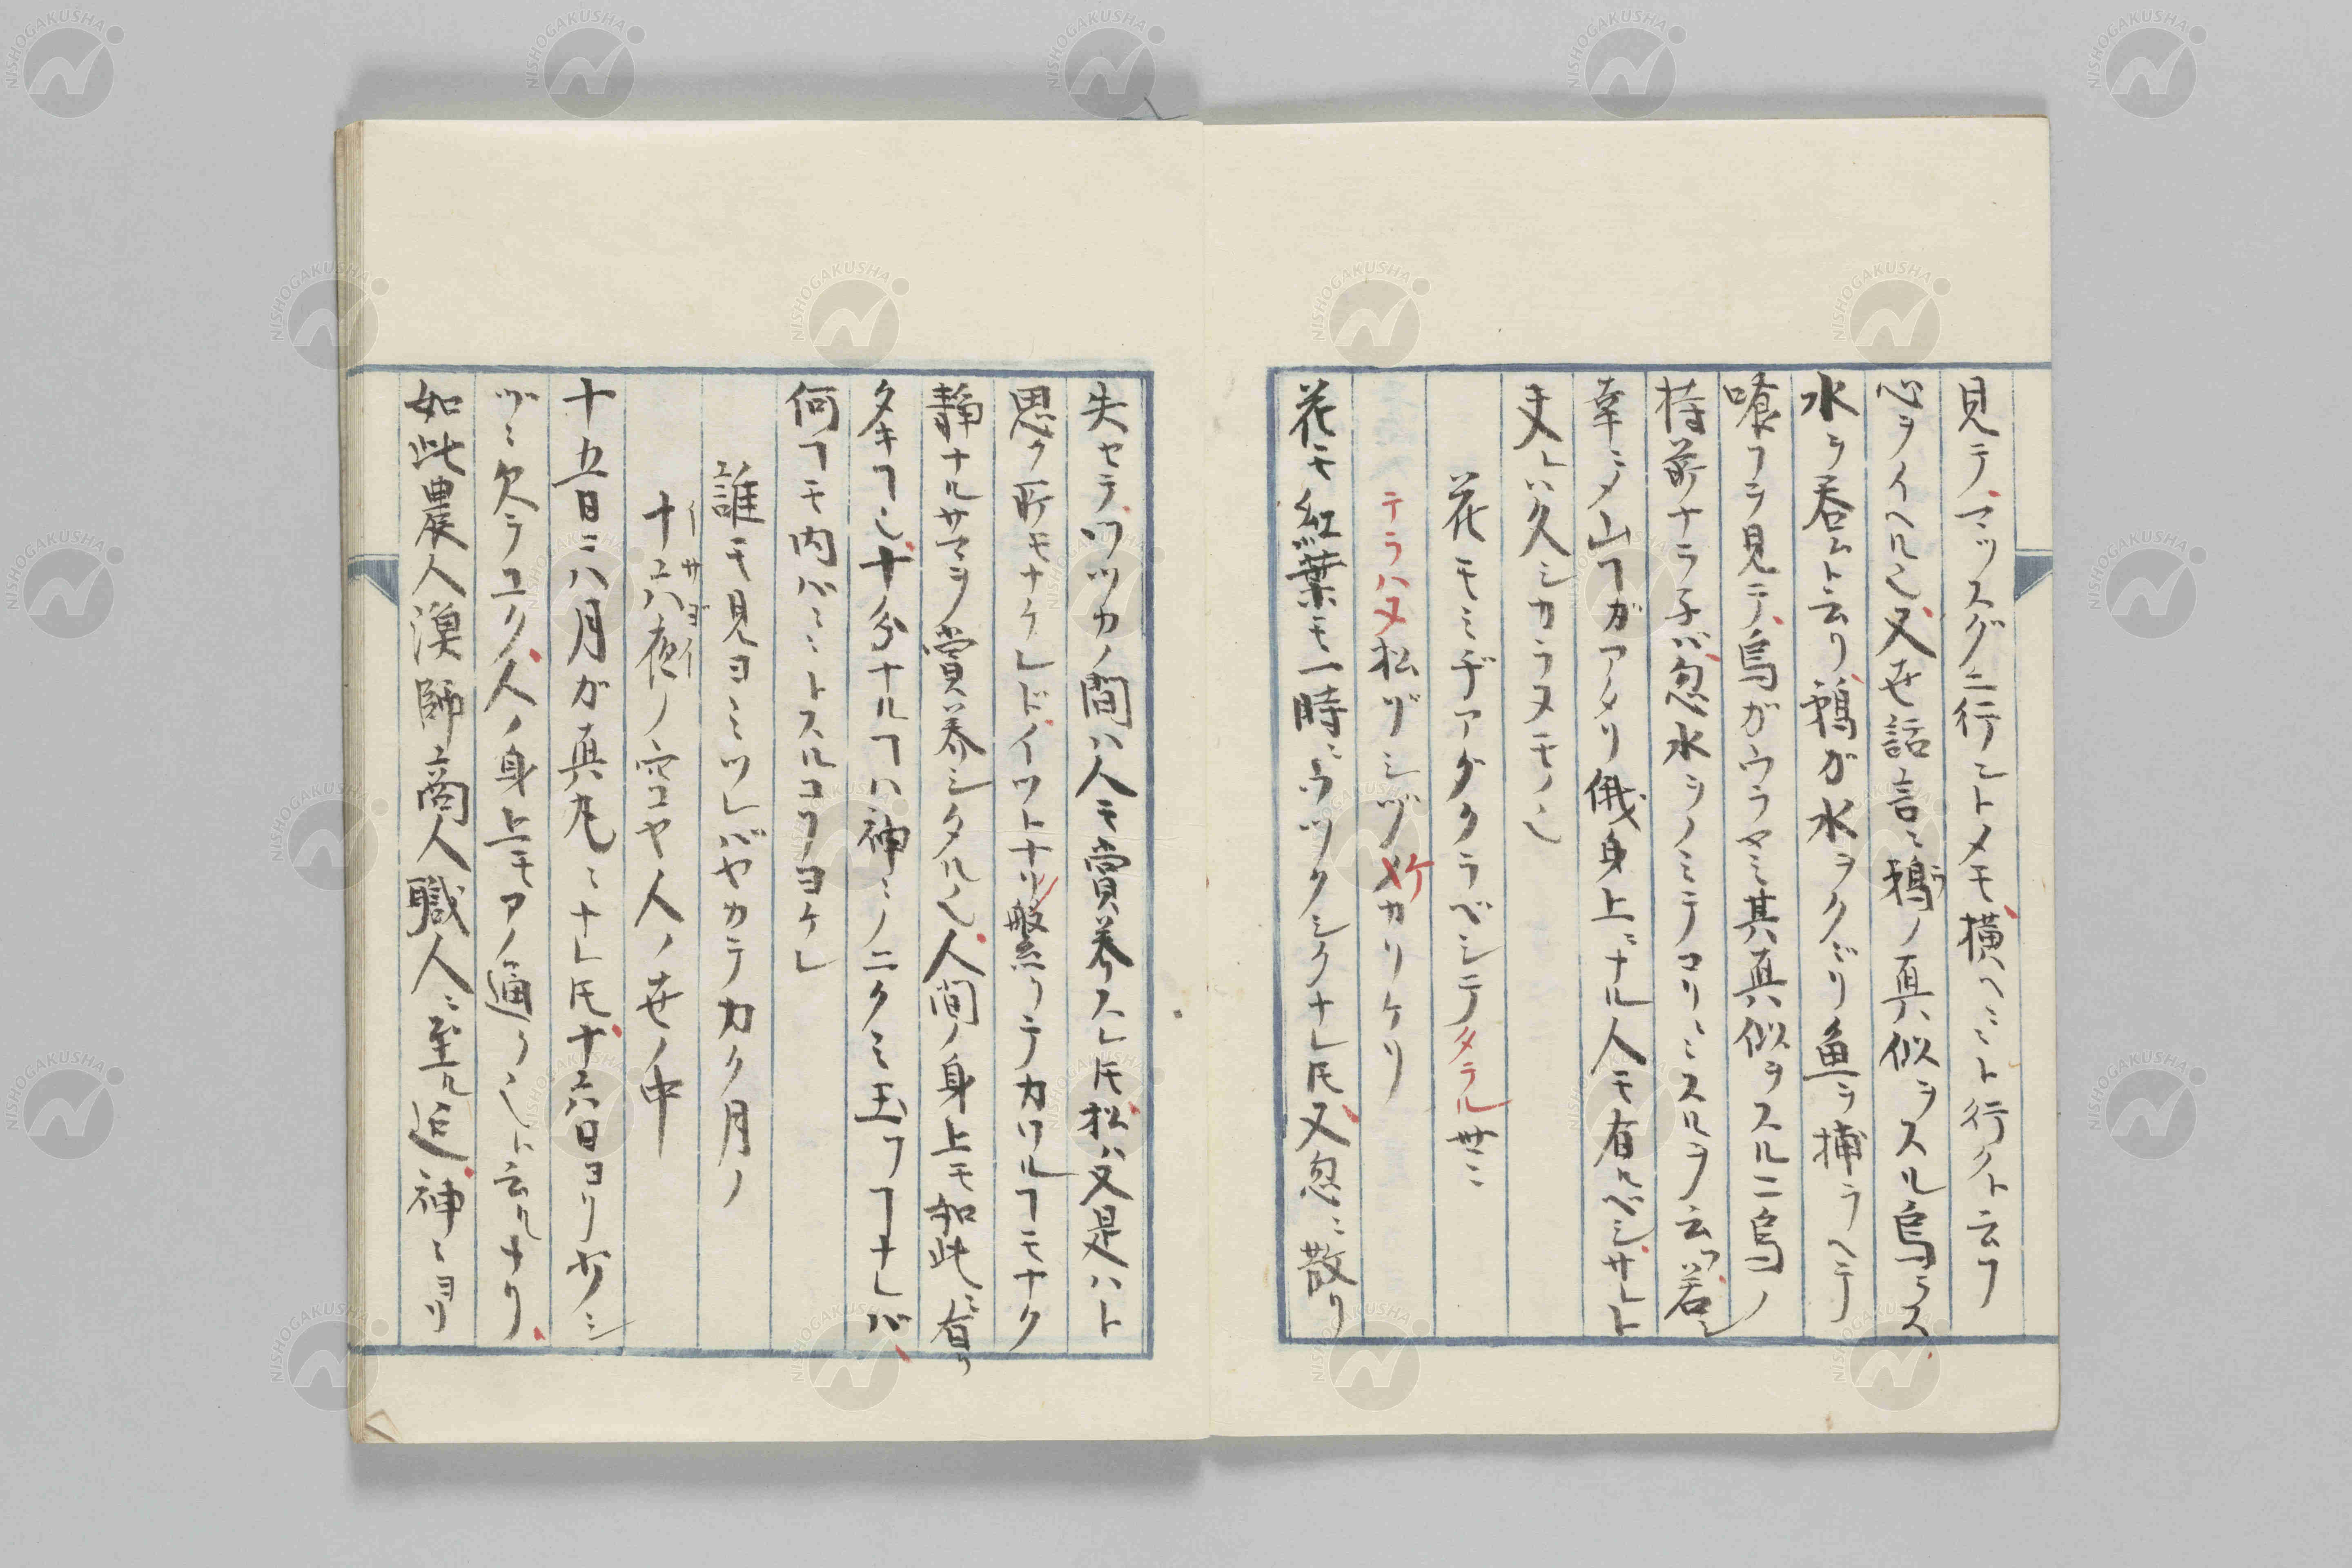 見テ、マッスグニ行ントメモ、横ヘミト行クト云フ
心ヲイヘル也、又世話言ニ鵜ノ真似ヲスル烏ミス
水ヲ呑ムト云リ、鵜ガ水ヲクヾリ魚ヲ捕ラヘテ
喰フヲ見テ、烏ガウラヤミ其真似ヲスルニ烏ノ
持前ナラ子バ、忽水ヲノミテコリミスルヲ云、若シ
幸ニメ山ヿガアタリ俄身上ニナル人モ有ベシ、サレト
夫トハ久シカラヌモノ也
花モミヂアダクラベシテタラル世ニ
テラハヌ松ゾシヅケカリケリ
花モ紅葉モ一時ニウツクシクナレ𪜈、又忽ニ散リ
失セテ、ワツカノ間ハ人モ賞美スレ𪜈、松ハ又是ハト
思ク所モナケレド、イツトナリ繁リテカワルヿモナク
静ナルサマヲ賞美シタル也、人間ノ身上モ如此ニ有リ
タキヿ也、十分ナルヿハ神ミノニクミ玉フヿナレバ、
何ヿモ内バミトスルコソヨケレ
誰モ見ヨミツレバヤカテカク月ノ
十六夜ノ空コヤ人ノ世ノ中
イサヨイ
十五日ニハ月ガ真丸ニナレ𪜈、十六日ヨリ少シ
ヅヽ欠ラユク、人ノ身上モアノ通リ也ト云ルナリ、
如此農人漁師商人職人ニ至ル迄、神ニヨリ
NISHOGAKUSHA